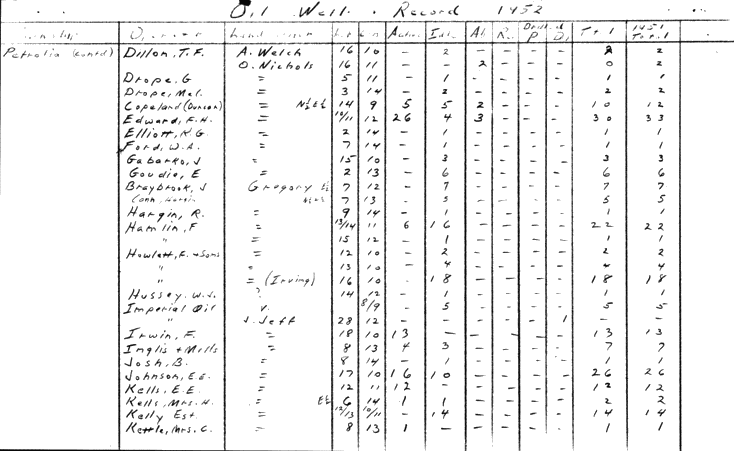 Oil Well Record 1952
Lot Con Active Idle Ab Ro Drilled P. D. Total 1951 Total
Petrolia (contd) Dillon, T.F. A. Welch 16 10 - 2 - - - - 2 2
O. Nichols 16 11 - - 2 - - - 0 2
Drope, G = 5 11 - 1 - - - - 1 1
Drope, Mel. = 3 14 - 2 - - - - 2 2
Copeland (Duncan) = N½E½ 14 9 5 5 2 - - - 10 12
Edward, F.H. = 10/11 12 26 4 3 - - - 30 33
Elliott, K.G = 2 14 - 1 - - - - 1 1
Ford, W.A. = 7 14 - 1 - - - - 1 1
Gabarko, J = 15 10 - 3 - - - - 3 3
Goudie, E = 2 13 - 6 - - - - 6 6
Braybrook, J Gregory E½ 7 12 - 7 - - - - 7 7
7 13 - 5 - - - - 5 5
Hargin, R. = 9 14 - 1 - - - - 1 1
Hamlin, F = 13/14 11 6 16 - - - - 22 22
" = 15 12 - 1 - - - - 1 1
Howlett, F. + Sons = 12 10 - 2 - - - - 2 2
" = 13 10 - 4 - - - - 4 4
" = (Irving) 16 10 - 18 - - - - 18 18
Hussey, W.J. ? 14 12 - 1 - - - - 1 1
Imperial Oil 8/9 - 5 - - - - 5 5
" J. Jeff 28 12 - - - - - 1 - -
Irwin, F. = 18 10 13 - - - - - 13 13
Inglis + Mills = 8 13 4 3 - - - - 7 7
Josh, B. = 8 14 - 1 - - - - 1 1
Johnson, E.E. = 17 10 16 10 - - - - 26 26
Kells, E.E. = 12 11 12 - - - - - 12 12
Kells, Mrs. H. = E½ 6 14 1 1 - - - - 2 2
Kelly Est. = 12/13 10/11 - 14 - - - - 14 14
Kettle, Mrs. C. = 8 13 1 - - - - - 1 1